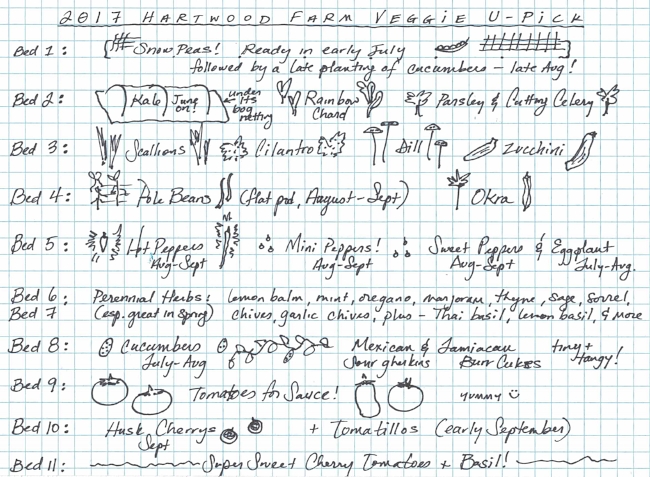 2017 HARTWOOD FARM VEGGIE U-PICK
Bed 1: Snow Peas! Ready in early July
followed by a late planting of cucumbers - late Aug!
Bed 2: Kale June on! ← under its bag netting Rainbow Chard Parsley & Cutting Celery
Bed 3: Scallions Cilantro Dill Zucchini
Bed 4: Pole Beans (flat pod, August-Sept) Okra
Bed 5: Hot Peppers Mini Peppers! Sweet Peppers & Eggplant
Aug-Sept Aug-Sept Aug-Sept July-Aug.
Bed 6: Perennial Herbs: lemon balm, mint, oregano, marjoram, thyme, sage, sorrel,
Bed 7 (esp. great in spring) chives, garlic chives, plus - Thai basil, lemon basil, & more
Bed 8: Cucumbers Mexican & Jamiacan tiny +
July-Aug Sour ghurkins Burr Cukes tangy!
Bed 9: Tomatoes for Sauce! yummy ☺
Bed 10: Husk Cherrys + Tomatillos (early September)
Sept
Bed 11: Super Sweet Cherry Tomatoes + Basil!